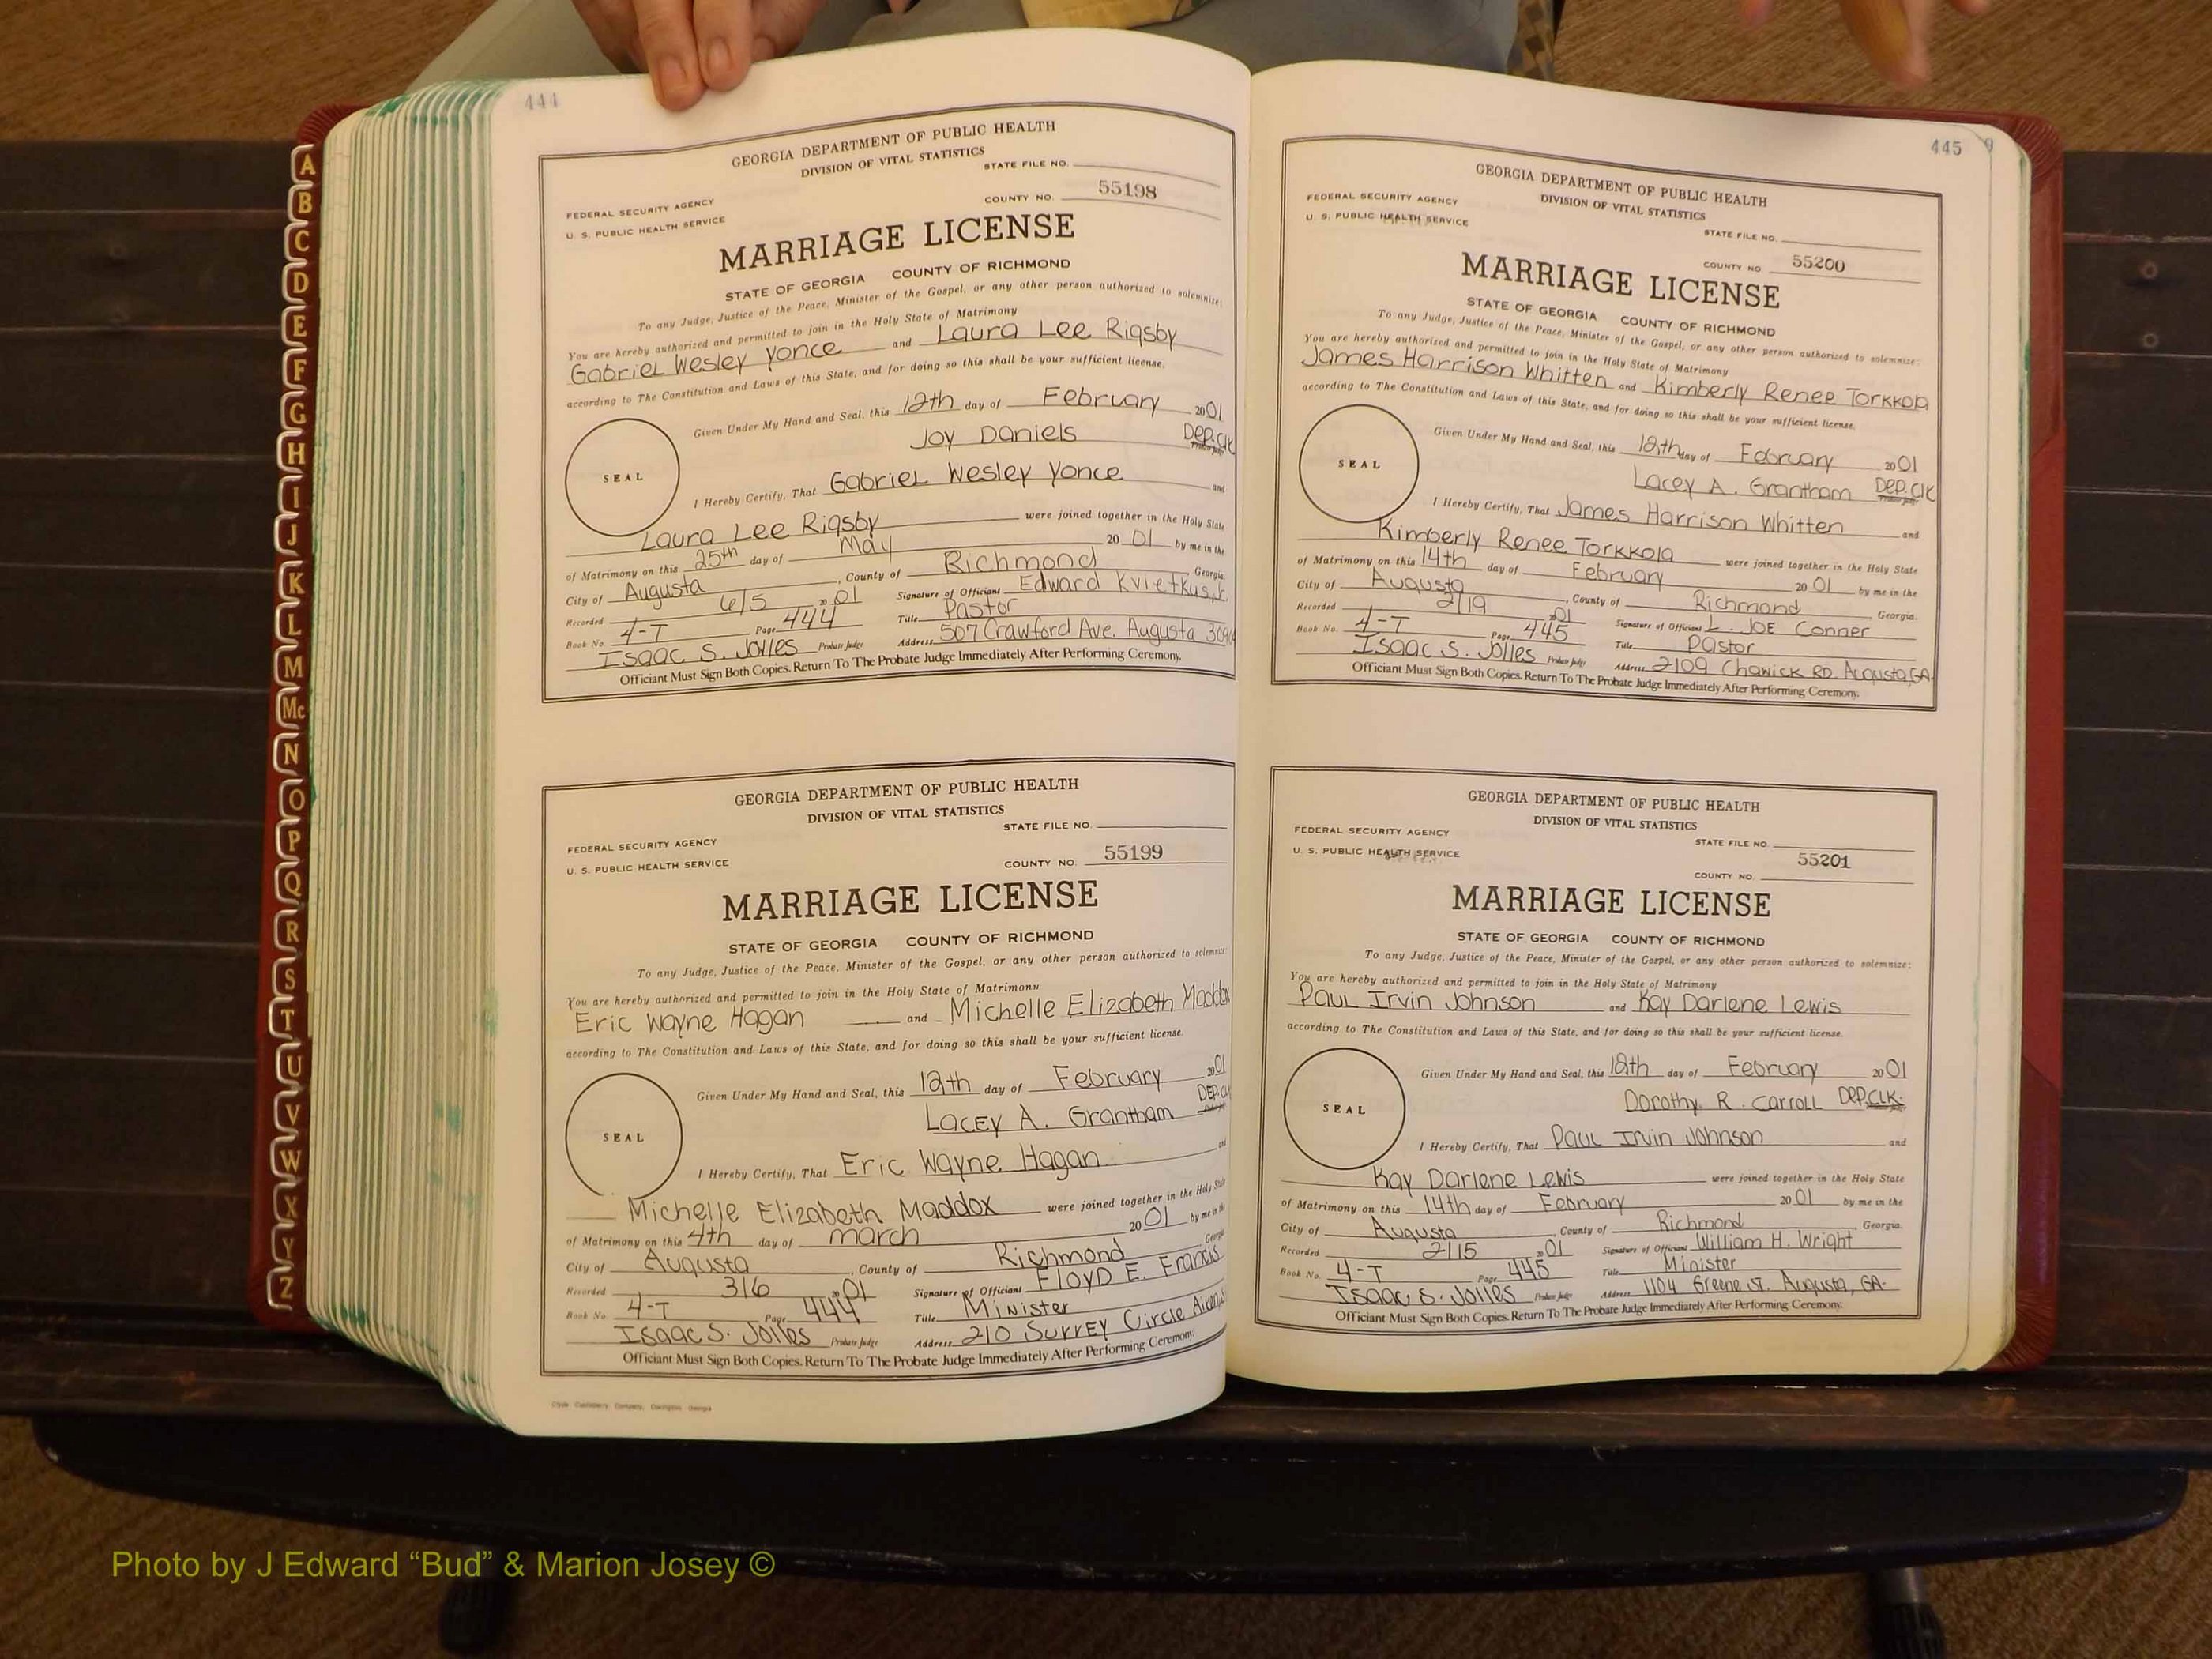 A
B
C
D
E
F
G
H
I
J
K
L
M
Mc
N
O
P
Q
R
S
T
U
V
W
X
Y
Z
444
GEORGIA DEPARTMENT OF PUBLIC HEALTH
DIVISION OF VITAL STATISTICS
STATE FILE NO.
FEDERAL SECURITY AGENCY
COUNTY NO. 55198
U. S. PUBLIC HEALTH SERVICE
MARRIAGE LICENSE
STATE OF GEORGIA COUNTY OF RICHMOND
To any Judge, Justice of the Peace, Minister of the Gospel, or any other person authorized to solemnize:
You are hereby authorized and permitted to join in the Holy State of Matrimony
Gabriel Wesley Yonce and Laura Lee Rigsby
according to The Constitution and Laws of this State, and for doing so this shall be your sufficient license.
Given Under My Hand and Seal, this 12th day of February 2001
Joy Daniels Dep. Clk
SEAL
I Hereby Certify, That Gabriel Wesley Yonce and
Laura Lee Rigsby were joined together in the Holy State
of Matrimony on this 25th day of May 20 01 by me in the
City of Augusta, County of Richmond, Georgia.
Recorded 6/5 2001 Signature of Officiant Edward Kvietkus, Jr.
Book No. 4-T Page 444 Title Pastor
Isaac S. Jolles Probate Judge Address 507 Crawford Ave. Augusta
Officiant Must Sign Both Copies. Return To The Probate Judge Immediately After Performing Ceremony.
GEORGIA DEPARTMENT OF PUBLIC HEALTH
DIVISION OF VITAL STATISTICS
STATE FILE NO.
FEDERAL SECURITY AGENCY
COUNTY NO. 55199
U. S. PUBLIC HEALTH SERVICE
MARRIAGE LICENSE
STATE OF GEORGIA COUNTY OF RICHMOND
To any Judge, Justice of the Peace, Minister of the Gospel, or any other person authorized to solemnize:
You are hereby authorized and permitted to join in the Holy State of Matrimony
Eric Wayne Hagan and Michelle Elizabeth Maddox
according to The Constitution and Laws of this State, and for doing so this shall be your sufficient license.
Given Under My Hand and Seal, this 12th day of February 2001
Lacey A. Grantham Dep. Clk
SEAL
I Hereby Certify, That Eric Wayne Hagan and
Michelle Elizabeth Maddox were joined together in the Holy State
of Matrimony on this 4th day of March 20 01 by me in the
City of Augusta, County of Richmond, Georgia
Recorded 3/6 2001 Signature of Officiant Floyd E. Francis
Book No. 4-T Page 444 Title Minister
Isaac S. Jolles Probate Judge Address 210 Surrey Circle Aiken, S
Officiant Must Sign Both Copies. Return To The Probate Judge Immediately After Performing Ceremony.
445
GEORGIA DEPARTMENT OF PUBLIC HEALTH
DIVISION OF VITAL STATISTICS
FEDERAL SECURITY AGENCY
U. S. PUBLIC HEALTH SERVICE
STATE FILE NO.
COUNTY NO. 55200
MARRIAGE LICENSE
STATE OF GEORGIA COUNTY OF RICHMOND
To any Judge, Justice of the Peace, Minister of the Gospel, or any other person authorized to solemnize:
You are hereby authorized and permitted to join in the Holy State of Matrimony
James Harrison Whitten and Kimberly Renee Torkkola
according to The Constitution and Laws of this State, and for doing so this shall be your sufficient license.
Given Under My Hand and Seal, this 12th day of February 2001
Lacey A. Grantham Dep. Clk
SEAL
I Hereby Certify, That James Harrison Whitten and
Kimberly Renee Torkkola were joined together in the Holy State
of Matrimony on this 14th day of February 20 01 by me in the
City of Augusta, County of Richmond Georgia.
Recorded 2/19 2001 Signature of Officiant L. Joe Conner
Book No. 4-T Page 445 Title Pastor
Isaac S. Jolles Probate Judge Address 2109 Chadwick RD. Augusta, GA.
Officiant Must Sign Both Copies. Return To The Probate Judge Immediately After Performing Ceremony.
GEORGIA DEPARTMENT OF PUBLIC HEALTH
DIVISION OF VITAL STATISTICS
FEDERAL SECURITY AGENCY
STATE FILE NO.
U. S. PUBLIC HEALTH SERVICE
COUNTY NO. 55201
MARRIAGE LICENSE
STATE OF GEORGIA COUNTY OF RICHMOND
To any Judge, Justice of the Peace, Minister of the Gospel, or any other person authorized to solemnize:
You are hereby authorized and permitted to join in the Holy State of Matrimony
Paul Irvin Johnson and Kay Darlene Lewis
according to The Constitution and Laws of this State, and for doing so this shall be your sufficient license.
Given Under My Hand and Seal, this 12th day of February 2001
Dorothy R. Carroll Dep. CLK.
SEAL
I Hereby Certify, That Paul Irvin Johnson and
Kay Darlene Lewis were joined together in the Holy State
of Matrimony on this 14th day of February 20 01 by me in the
City of Augusta, County of Richmond Georgia.
Recorded 2/15 2001 Signature of Officiant William H. Wright
Book No. 4-T Page 445 Title Minister
Isaac S. Jolles Probate Judge Address 1104 Greene St. Augusta, GA.
Officiant Must Sign Both Copies. Return To The Probate Judge Immediately After Performing Ceremony.
Photo by J Edward “Bud” & Marion Josey ©